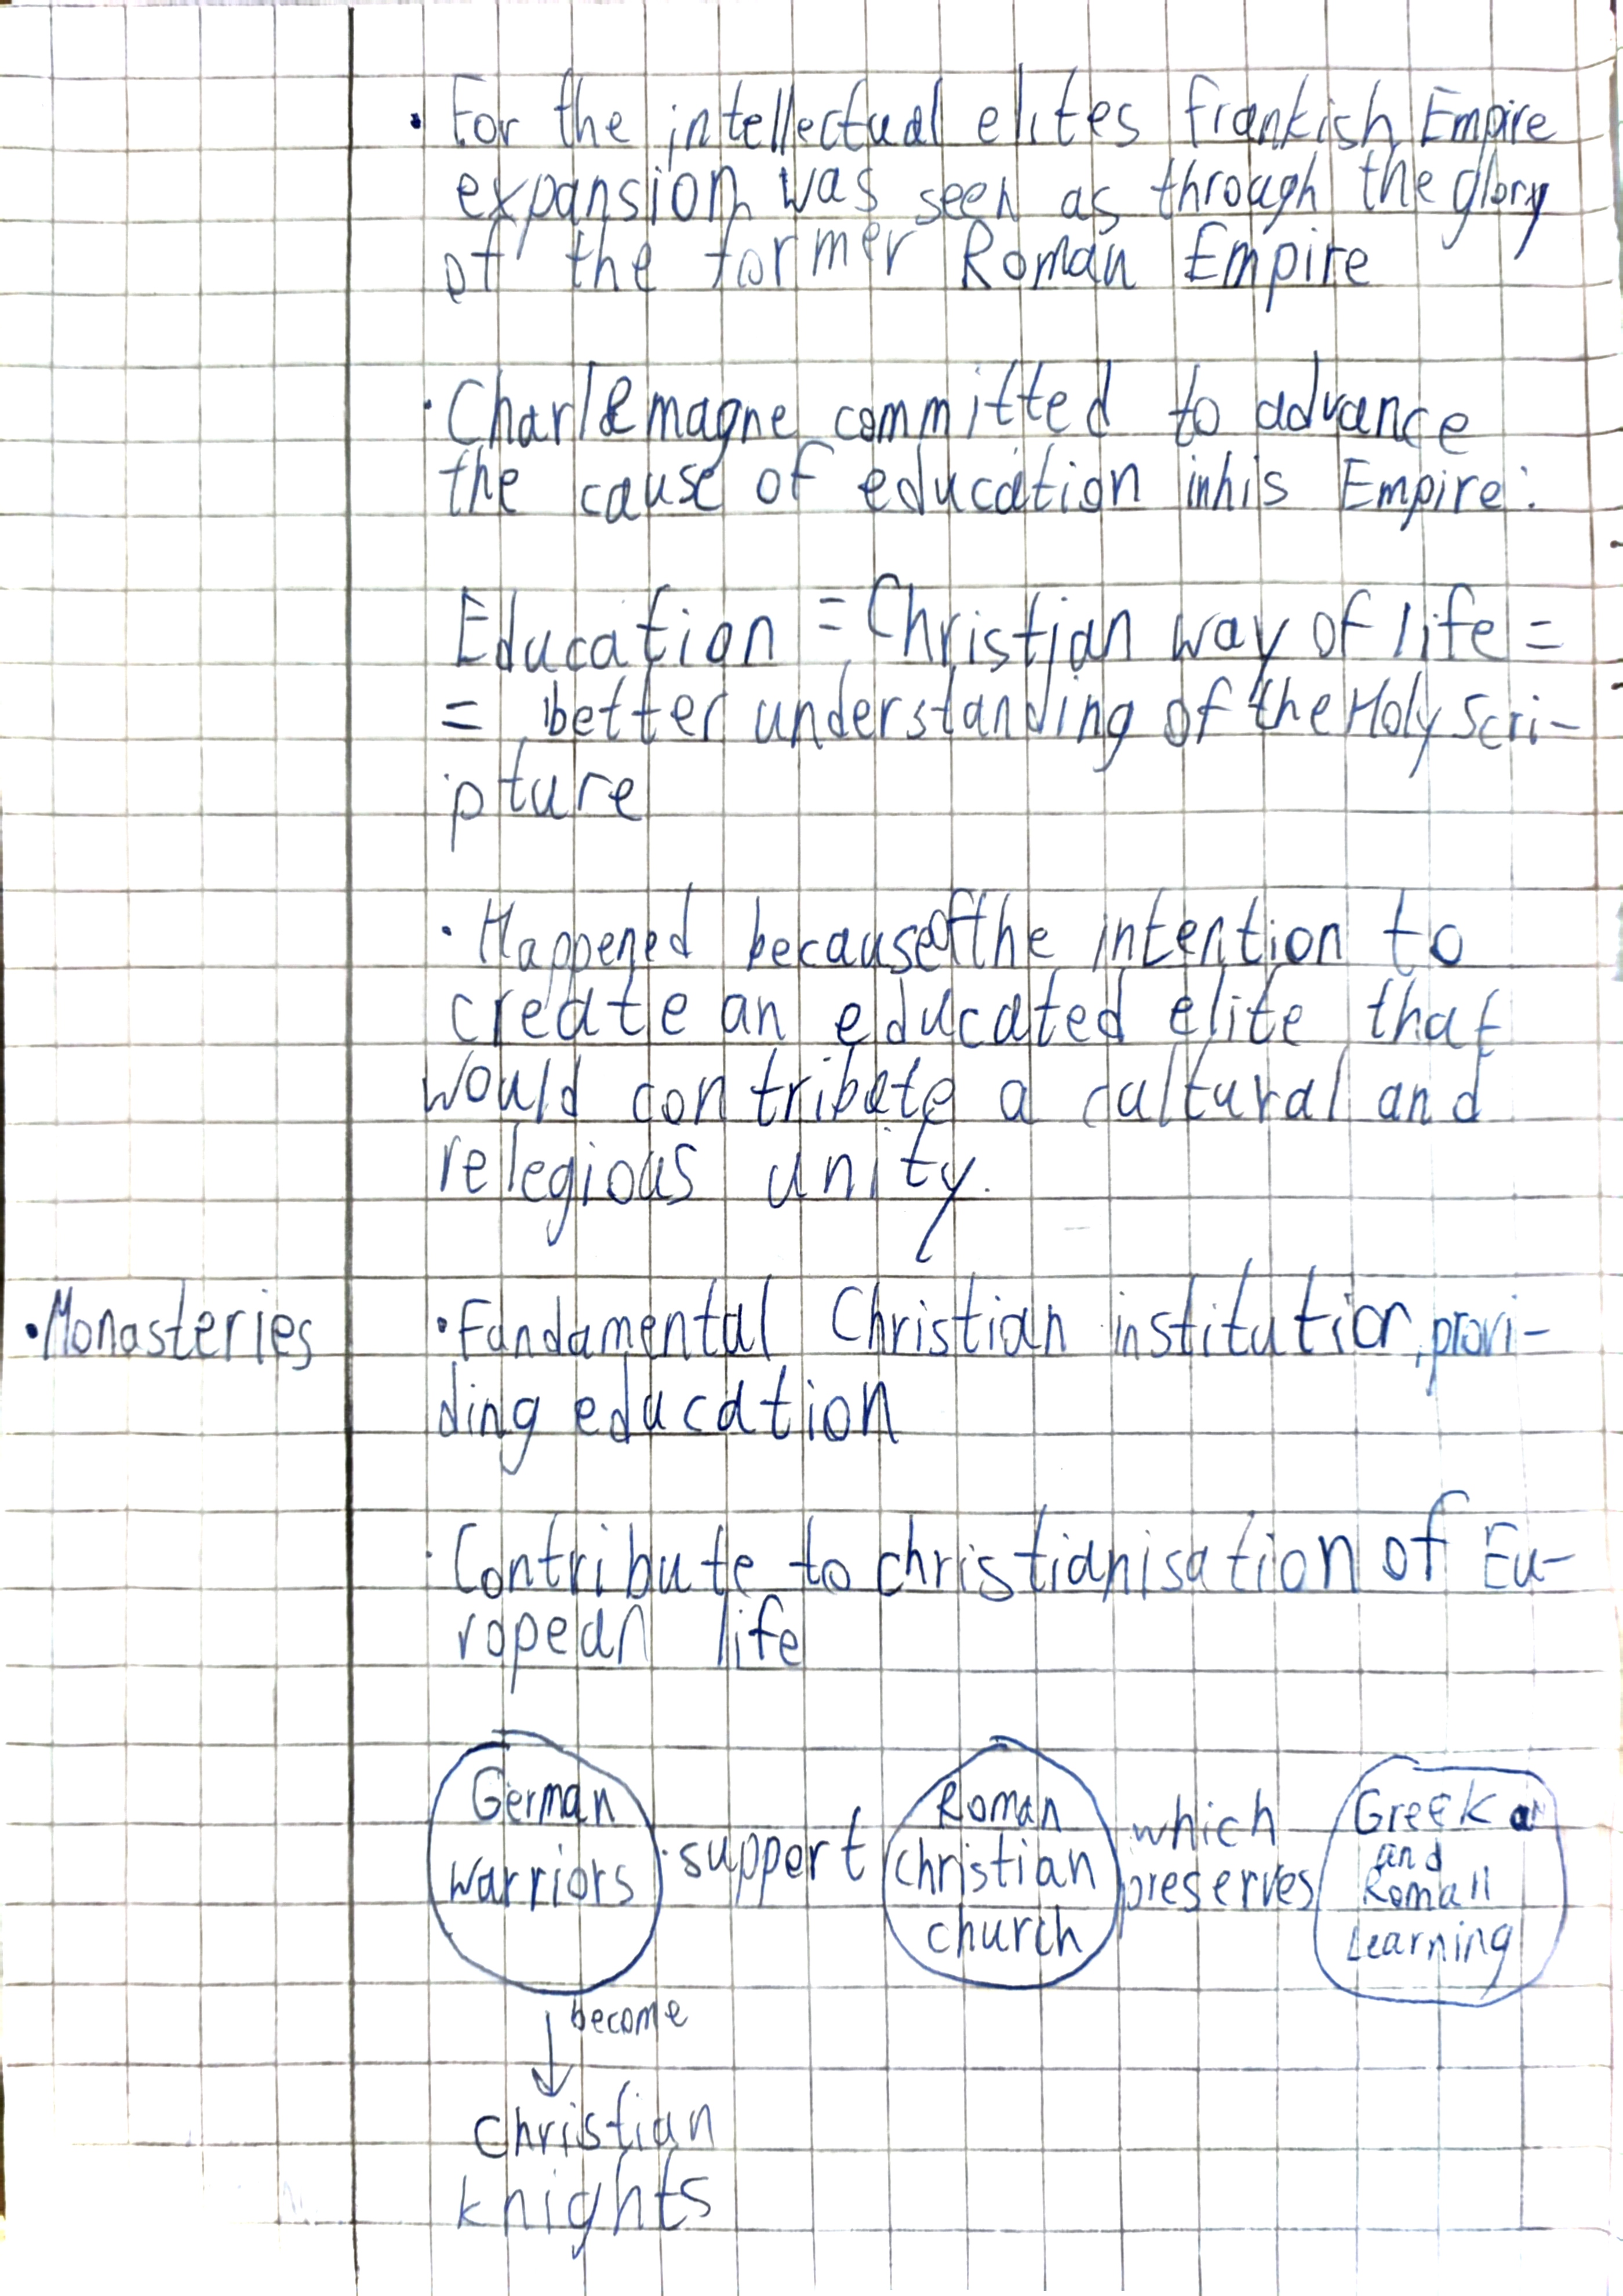 • For the intellectual elites Frankish Empire
expansion was seen as through the glory
of the former Roman Empire
• Charlemagne committed to advance
the cause of education in his Empire:
Education = Christian way of life =
= better understanding of the Holy Scri-
pture
• Happened because of the intention to
create an educated elite that
would contribute a cultural and
relegious unity.
• Monasteries
• Fundamental Christian institution, provi-
ding education
• Contribute to christianisation of Eu-
ropean life
German
warriors
support
Roman
christian
church
which
preserves
Greek
and
Roman
Learning
become
christian
knights